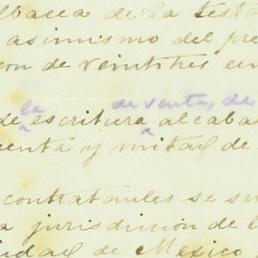 lbacea de la testa
asimismo del pre
con de veintitres en
la de venta, de
de escritura alcaba
uenta y mitad de
contratantes se su
a jurisdiccion de l
iudad de Mexico